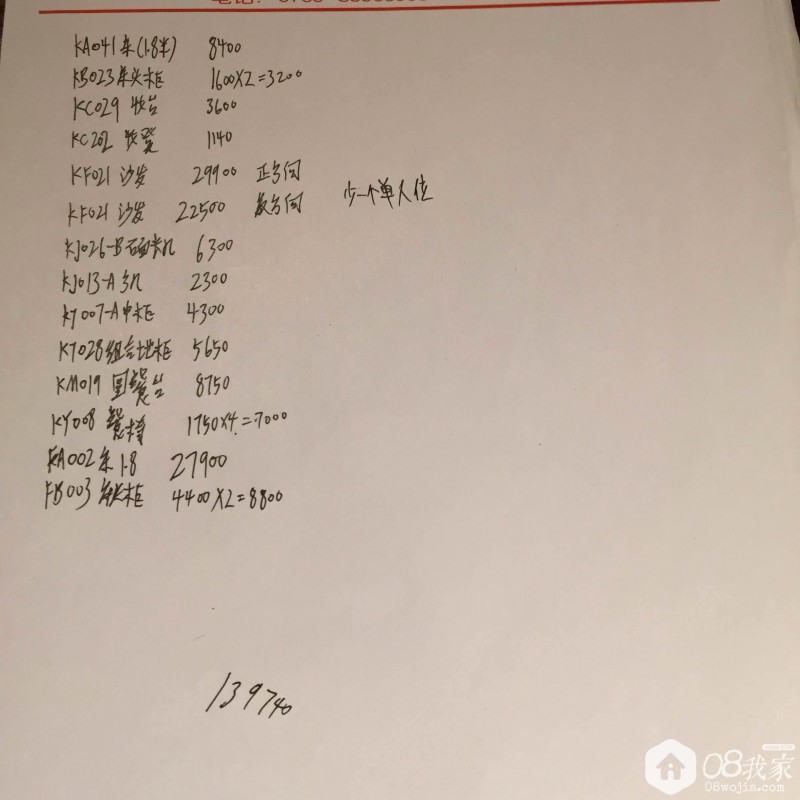 KA041 床(1.8米) 8400
KB023 床头柜 1600X2=3200
KC029 妆台 3600
KC202 妆凳 1140
KF021 沙发 29900 正方向
KF021 沙发 22500 反方向 少一个单人位
KJ026-B 石面长几 6300
KJ013-A 方几 2300
KT007-A中柜 4300
KT028组合地柜 5650
KM019 圆餐台 8750
KY008 餐椅 1750X4=7000
FA002床 1.8 27900
FB003 床头柜 4400X2=8800
139740
08我家
08wojia.com